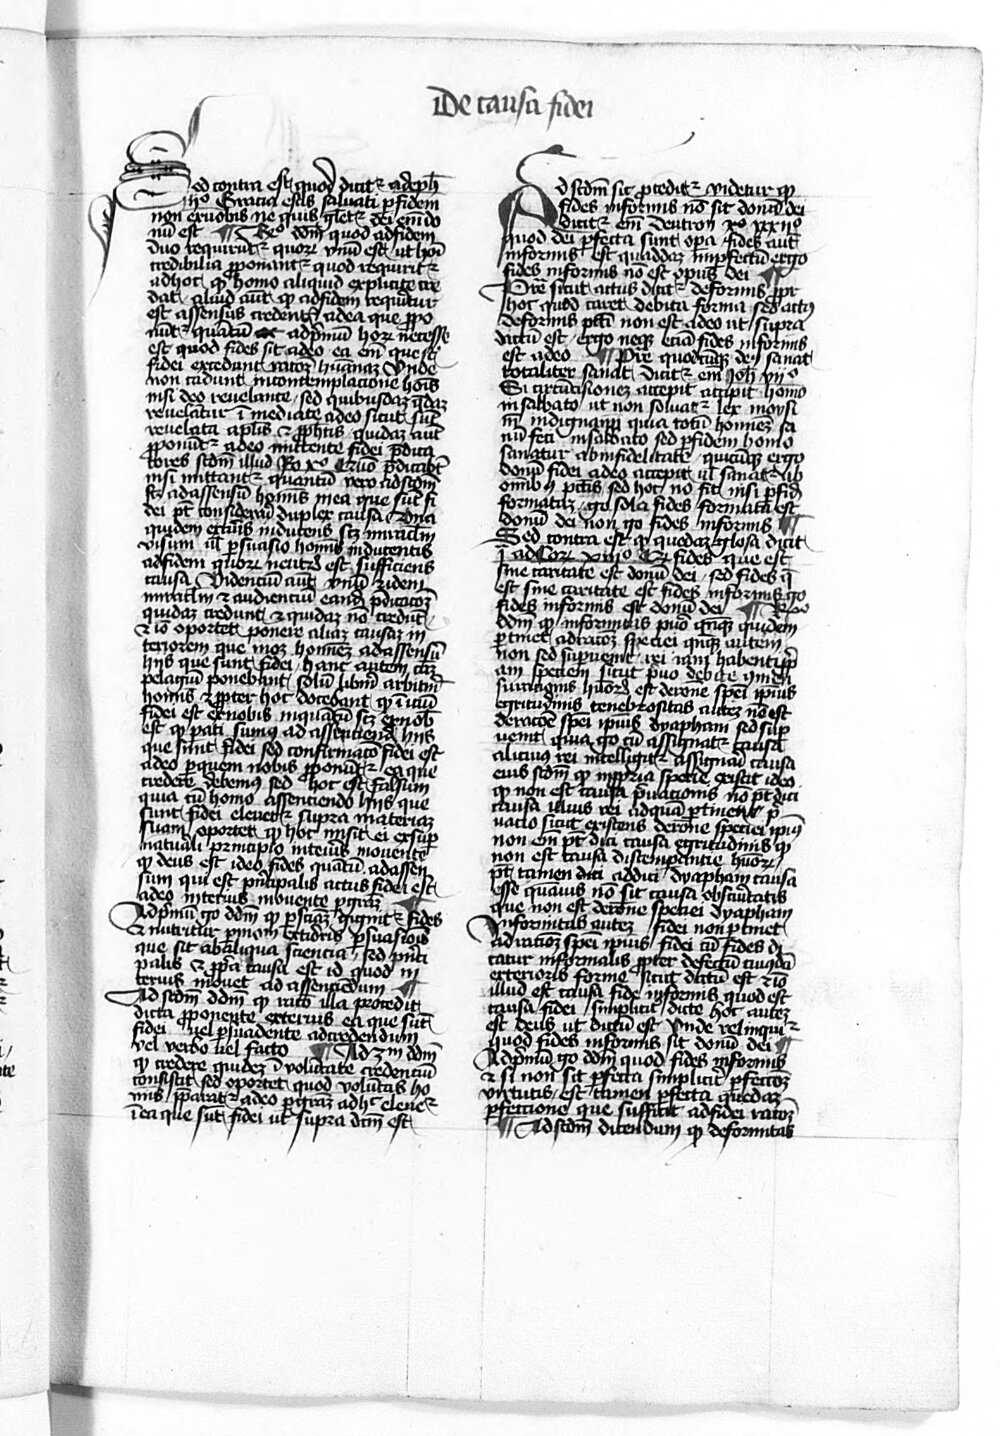 De causa fidei
Sed contra est quod dicit᷑ ad eph̅
ijº Gratia estis saluati p fidem
non ex uobis ne quis glet᷑ dei em̅ do
nu̅ est ¶ Rº dd̅m quod ad fidem
duo requirut᷑ quorꝝ vnu̅ est ut ho̅i
credibilia proponant᷑ quod requirit᷑
ad hoc ꝙ homo aliquid explicite cre
dat aliud aut̅ ꝙ ad fidem requirit᷑
est assensus credent̅ ad ea que propo
nut᷑ quantu̅ ad pͥmu̅ horꝝ necesse
est quod fides sit a deo ea em̅ que sut̅
fidei excedunt rato̅ez hu̅anaz Unde
non cadunt in contemplatione ho̅is
nisi deo reuelante sed quibusdaz q̅daz
reuelatur i̅mediate a deo sicut su̅t
reuelata aplis ⁊ prophetis quibusdaz aut̅
proponut᷑ a deo mittente fidei p̅dica
tores scdm̅ illud Ro xº Quo p̅dicabt̅
nisi mittant᷑ quantu̅ vero ad scdm̅
sc̅ ad assensu̅ hominis in ea que su̅t fi
dei pt̅ considerari duplex causa Una
quidem exterius inducens scz miracl̅m
visum ul̅ persuasio hominis inducentis
ad fidem quorꝝ neutrꝝ est sufficiens
causa Videntiu̅ aut̅ vnu̅ ⁊ idem
miracl̅m ⁊ audientiu̅ eand̅ p̅dicato̅ez
quidaz credunt ⁊ quidaz no̅ credu̅t
⁊ io̅ oportet ponere aliaz causaz in
teriorem que mo̅z hominez ad assensu̅
hijs que sunt fidei hanc autem ca̅z
pelagiu̅ ponebant solu̅ libru̅ arbitriu̅
hominis ⁊ propter hoc docebant ꝙ initiu̅
fidei est ex nobis inquatu̅ scz ex nob̅
est ꝙ pati sumus ad assentiend̅ hijs
que sunt fidei sed confirmato̅ fidei est
a deo per quem nobis proponut᷑ ea que
credere debemus sed hoc est falsum
quia cu̅ homo assentiendo hijs que
sunt fidei eleuet᷑ supra materiaz
suam oportet ꝙ hoc insit ei ex supr̅
naturali principio interius mouente
ꝙ deus est ideo fides quantu̅ ad assen
sum qui est principalis actus fidei est
a deo interius mouente per graz̅ ¶
Ad pͥmu̅ go dd̅m ꝙ per sciaz gignit᷑ fides
⁊ nutritur per mo̅m exterioris persuasiois
que sit ab aliqua sciencia sed princi
palis ⁊ propria causa est id quod in
terius mouet ad assenciedum ¶
Ad scdm̅ dd̅m ꝙ rato̅ illa procedit
dicta proponente exterius ea que sut̅
fidei uel persuadente ad credendum
vel verbo uel facto ¶ Ad 3m dd̅m
ꝙ credere quidez i̅ voluntate credentiu̅
consistit sed oportet quod voluntas ho
minis prepparat᷑ a deo per graz̅ ad hͨ eleue᷑
i̅ ea que sut̅ fidei ut supra dc̅m est
Ad scdm̅ sic procedit᷑ videtur ꝙ
fides informis no̅ sit donu̅ dei
dicit᷑ em̅ deutron xº xxxijº
quod dei perfecta sunt opa fides aut̅
informis est quiddaz imperfectu̅ ergo
fides informis no̅ est opus dei ¶
Pre̅ sicut actus dicit᷑ deformis propt̅
hoc quod caret debita forma sed actus
deformis pcti̅ non est a deo ut supra
dictu̅ est ergo neqꝫ etia̅ fides informis
est a deo ¶ Pre̅ quodcuqꝫ deus sanat
totaliter sanat dicit᷑ em̅ Joh̅ vijº
Si circu̅cisionez accepit accipit homo
in sabbato ut non soluat᷑ lex moysi
m̅ indignamini quia totu̅ hominez sa
nu̅ feci in sabbato sed per fidem homo
sanatur ab infidelitate quicu̅qꝫ ergo
donu̅ fidei a deo accepit ul̅ sanat᷑ ab
omibꝰ pctis sed hoc no̅ fit nisi per fid̅
formataz go sola fides formata est
donu̅ dei non go fides informis ¶
Sed contra est ꝙ quedaz glosa dicit
i ad Cor̅ xiijº ꝙ fides que est
sine caritate est donu̅ dei sed fides q̅
est sine caritate est fides informis go
fides informis est donu̅ dei ¶ Rº
dd̅m ꝙ informitas priuatio quidem
pertinet ad ratoz speciei quiqꝫ autem
non sed superuenit rei iam habenti ppri
am speciem sicut priuatio debite commen
suratiois hu̅orꝝ est de ratone speciei ipius
egritudinis tenebrositas autez no̅ est
de rato̅e spei ipius dyaphani sed sup
uenit quia go cu̅ assignat᷑ causa
alicuius rei intelligit᷑ assignari causa
eius scdm̅ ꝙ in propria specie existit ideo
ꝙ non est causa priuationis no̅ pt̅ dici
causa illius rei ad quam pertinet pri
uatio sicut existens de rato̅ne speciei ipius
non em̅ pt̅ dici causa egritudinis ꝙ
non est causa distemperantie hu̅orꝝ
pt̅ tamen dici aliquid dyaphani causa
esse quamuis no̅ sit causa obscuritatis
que non est de rato̅ne speciei dyaphani
Informitas autez fidei non pertinet
ad ratoz spe̅i ipius fidei cu̅ fides di
catur informis propter defectu̅ cuiusda̅
exterioris forme sicut dictu̅ est ⁊ io̅
illud est causa fidei informis quod est
causa fidei simpliciter dicte hoc autez
est deus ut dictu̅ est Unde relinquit᷑
quod fides informis sit donu̅ dei ¶
Ad pͥmu̅ go dd̅m quod fides informis
⁊ si non sit perfecta simplicit̅ perfecto̅ez
virtutis est tamen perfecta quedaz
perfectione que sufficit ad fidei ratoz
¶ Ad scdm̅ dicendum ꝙ deformitas